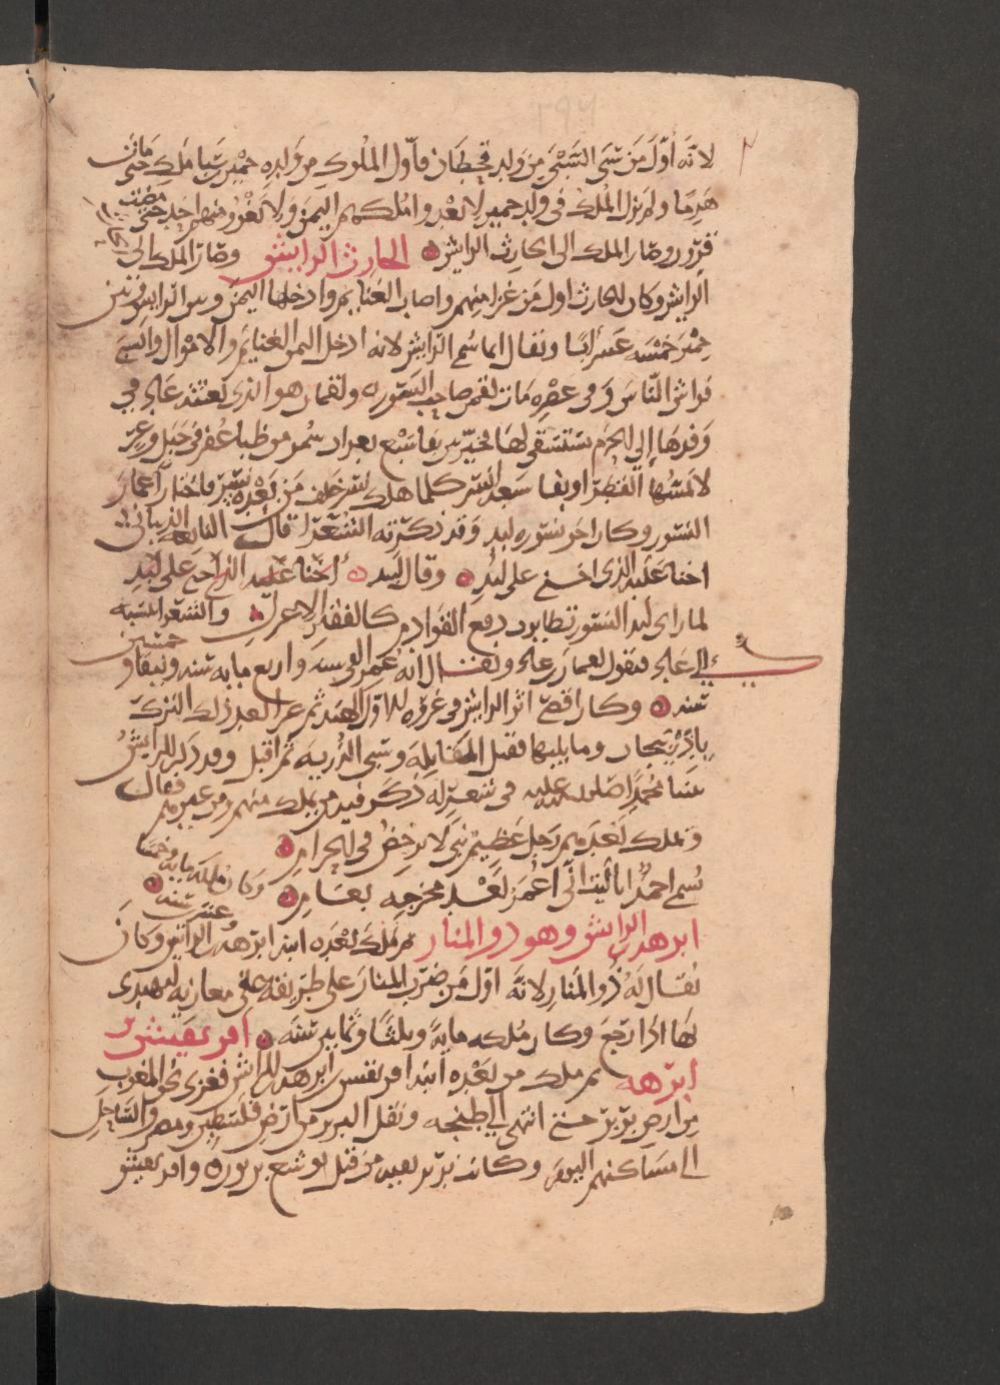 لانه أوّل مَن سَبَى السَّبْىَ مِن وَلد قحطان فاوّل الملوك من وَلده حِمْيَر بن سَبا مَلك حتى مات
هَرِمًا ولم يزل المُلك فى ولد حمير لا يعدوا مُلكهم اليمن ولا يَغْزُو منهم احد حتى مضت
قرون وصار الملك الى الحارث الرايش ۞ الحارث الرايش وصار الملك الى
الرايش وكان الحارث اول مَن غزا منهم واصاب الغنايم وادخلها اليمن وبين الرايش وبين
حِمْير خمسه عشر ابًا ويقال انما سُمى الرايش لانه ادخل اليمن الغنايم والاموال والسبى
فراش النّاسَ وفى عصْره مَات لقمن صاحب النسور ۞ ولقمان هو الذى بعثته عاد فى
وَفدِهَا إلى الحَرَم يستسقى لها فخيّر بين بقا سَبْع بعرات سُمر من ظباء عُفر فى جبل وعِر
لا يمسّها القطر او بقا سبعه انسُر كلما هلك نسر خلف مَن بَعْده نسر فاختار اعمار
النسور وكان اخر نسوره لبد وَقد ذكرته الشعرا قال النابغه الذبيانى
اخنا عليه الذى اخنى على لُبَد ۞ وقال لبيد ۞ أخنا عَليه الذى اخنى على لُبَد
لما راى لبد النسور تطايرت رفع القوادم كالفقير الاعزل ۞ والشعرا تنسبه
الى عاد فتقول لقمان عاد ويقال انه عُمر الفى سنه واربع مايه سنه ونيفا و خمسين
سنه ۞ وكان اقصى اثر الرايش فى غزوه الاوّل الهند ثم غزا بعد ذلك الترك
باذربيجان وما يليها فقتل المقاتِلة وسَبى الذُّريه ثم اقبل وقد ذكر الرايشُ
نبينا مُحمدًا صلى الله عليه فى شعرٍ له ذكر فيه من يملك منهم ومن غيرهم فقال
ويملك بعْدهم رَجل عَظيم نبى لا يرخّصُ فى الحرام ۞
يُسمى احمدًا يا ليت انّى اعمَّر بَعْد مخرجه بعَامِ ۞ وكان مُلكه مايه وخمسًا
وعشرين سنه ۞
ابرهه بن الرايش وهو ذو المنار ثم مَلكَ بَعْده ابنه ابرهةُ بن الرايش وكانَ
يُقال لهُ ذو المَنارِ لانّه اوّل مَن ضَرب المنارَ على طريقه فى مغازيه ليَهتدى
بها اذا رَجع وكان مُلكه مايةً وثلثًا وثمانين سَنه ۞ افريقيش بن
ابرهه ثم ملك من بَعْده ابنه افريقيس بن ابرهه بن الرايش فغزى نحو المغرب
من ارض بَرْبَر حتى انتهى الى طنجه ونقل البربر من ارض فلسطين ومصر والسَّاحِل
الى مسَاكنهم اليوم وكانت بَرْبَر بقيه من قتل يوشع بن نون ۞ وافريقيش